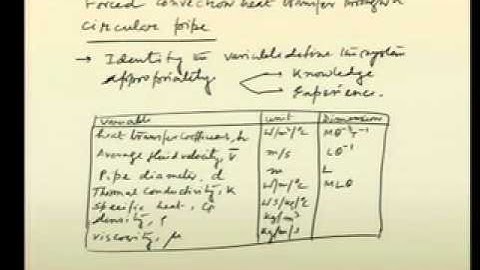 Forced convection heat transfer through a
circular pipe
→ Identify the variables define the system
appropriately
Knowledge
Experience.
Variable unit Dimension
heat transfer coefficient, h W/m²/°c Mθ⁻³T⁻¹
Average fluid velocity, V̄ m/s Lθ⁻¹
Pipe diameter, d m L
Thermal conductivity, K W/m/°c MLθ
Specific heat, Cp WS/kg/°c
density, ρ kg/m³
viscosity, μ kg/m/s